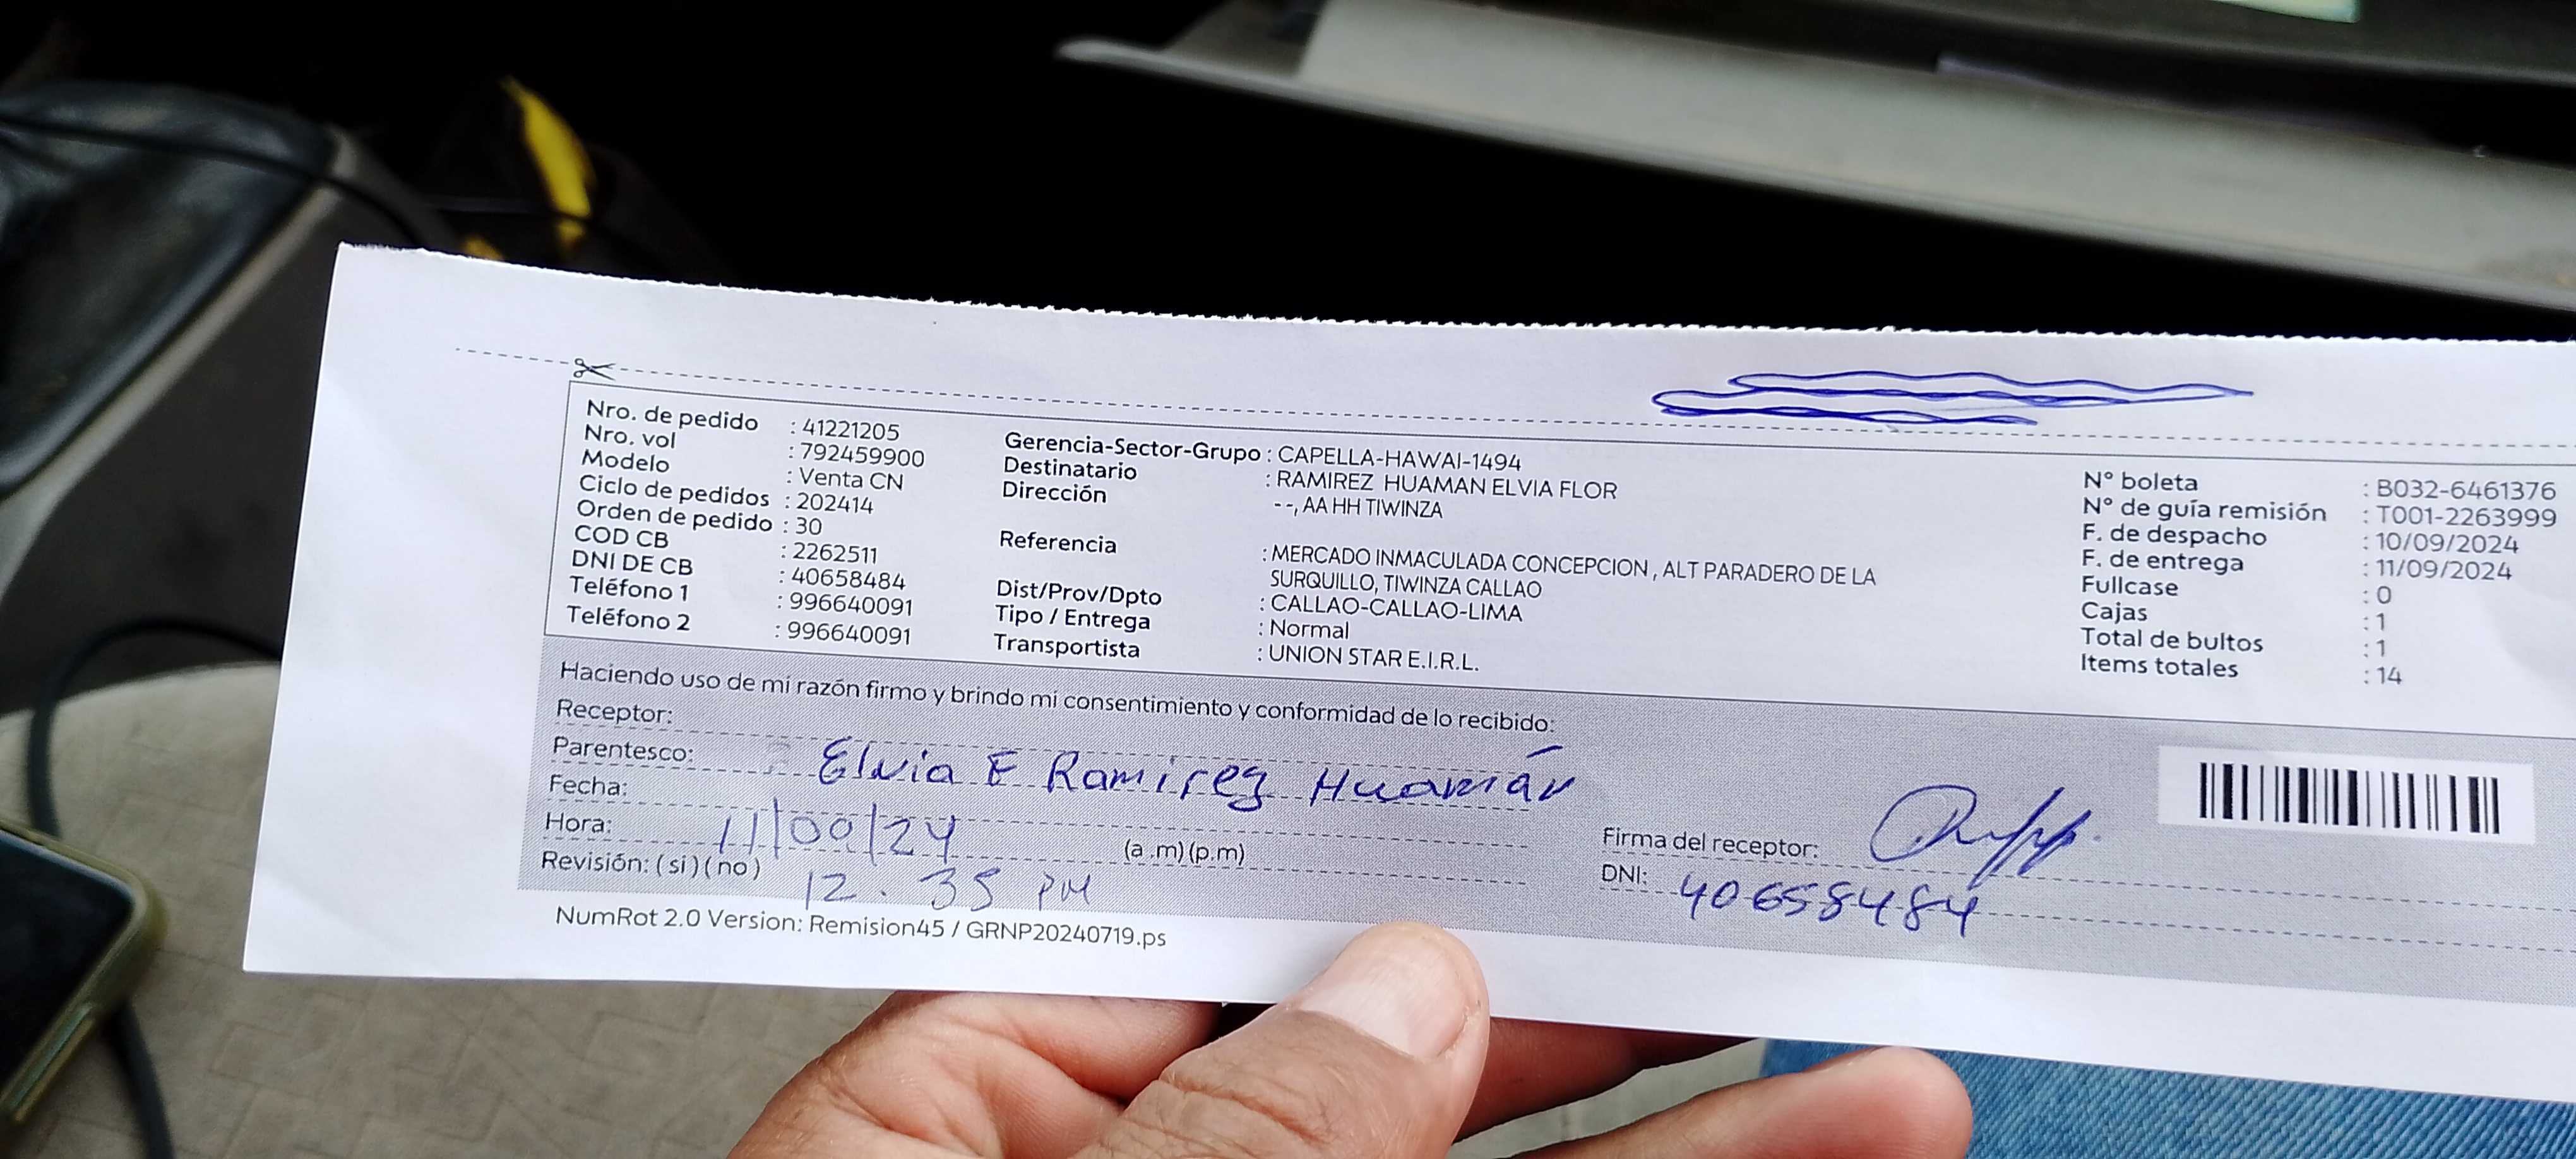 Nro. de pedido : 41221205
Nro. vol : 792459900
Modelo : Venta CN
Ciclo de pedidos : 202414
Orden de pedido : 30
COD CB : 2262511
DNI DE CB : 40658484
Teléfono 1 : 996640091
Teléfono 2 : 996640091
Gerencia-Sector-Grupo : CAPELLA-HAWAI-1494
Destinatario : RAMIREZ HUAMAN ELVIA FLOR
Dirección : --, AA HH TIWINZA
Referencia : MERCADO INMACULADA CONCEPCION , ALT PARADERO DE LA
SURQUILLO, TIWINZA CALLAO
Dist/Prov/Dpto : CALLAO-CALLAO-LIMA
Tipo / Entrega : Normal
Transportista : UNION STAR E.I.R.L.
N° boleta : B032-6461376
N° de guía remisión : T001-2263999
F. de despacho : 10/09/2024
F. de entrega : 11/09/2024
Fullcase : 0
Cajas : 1
Total de bultos : 1
Items totales : 14
Haciendo uso de mi razón firmo y brindo mi consentimiento y conformidad de lo recibido:
Receptor:
Parentesco: Elvia F Ramirez Huamán
Fecha:
Hora: 11/09/24 (a .m) (p.m)
Revisión: (si) (no) 12. 35 PM
Firma del receptor:
DNI: 40658484
NumRot 2.0 Version: Remision45 / GRNP20240719.ps